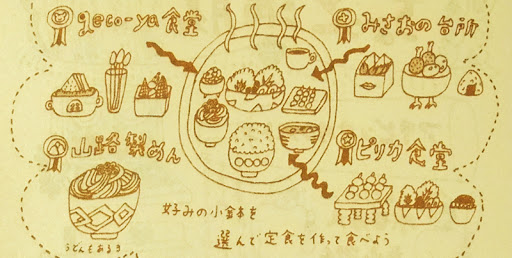 geco-ya 食堂
みさおの台所
山路製めん
ピリカ食堂
好みの小鉢を
選んで定食を作って食べよう